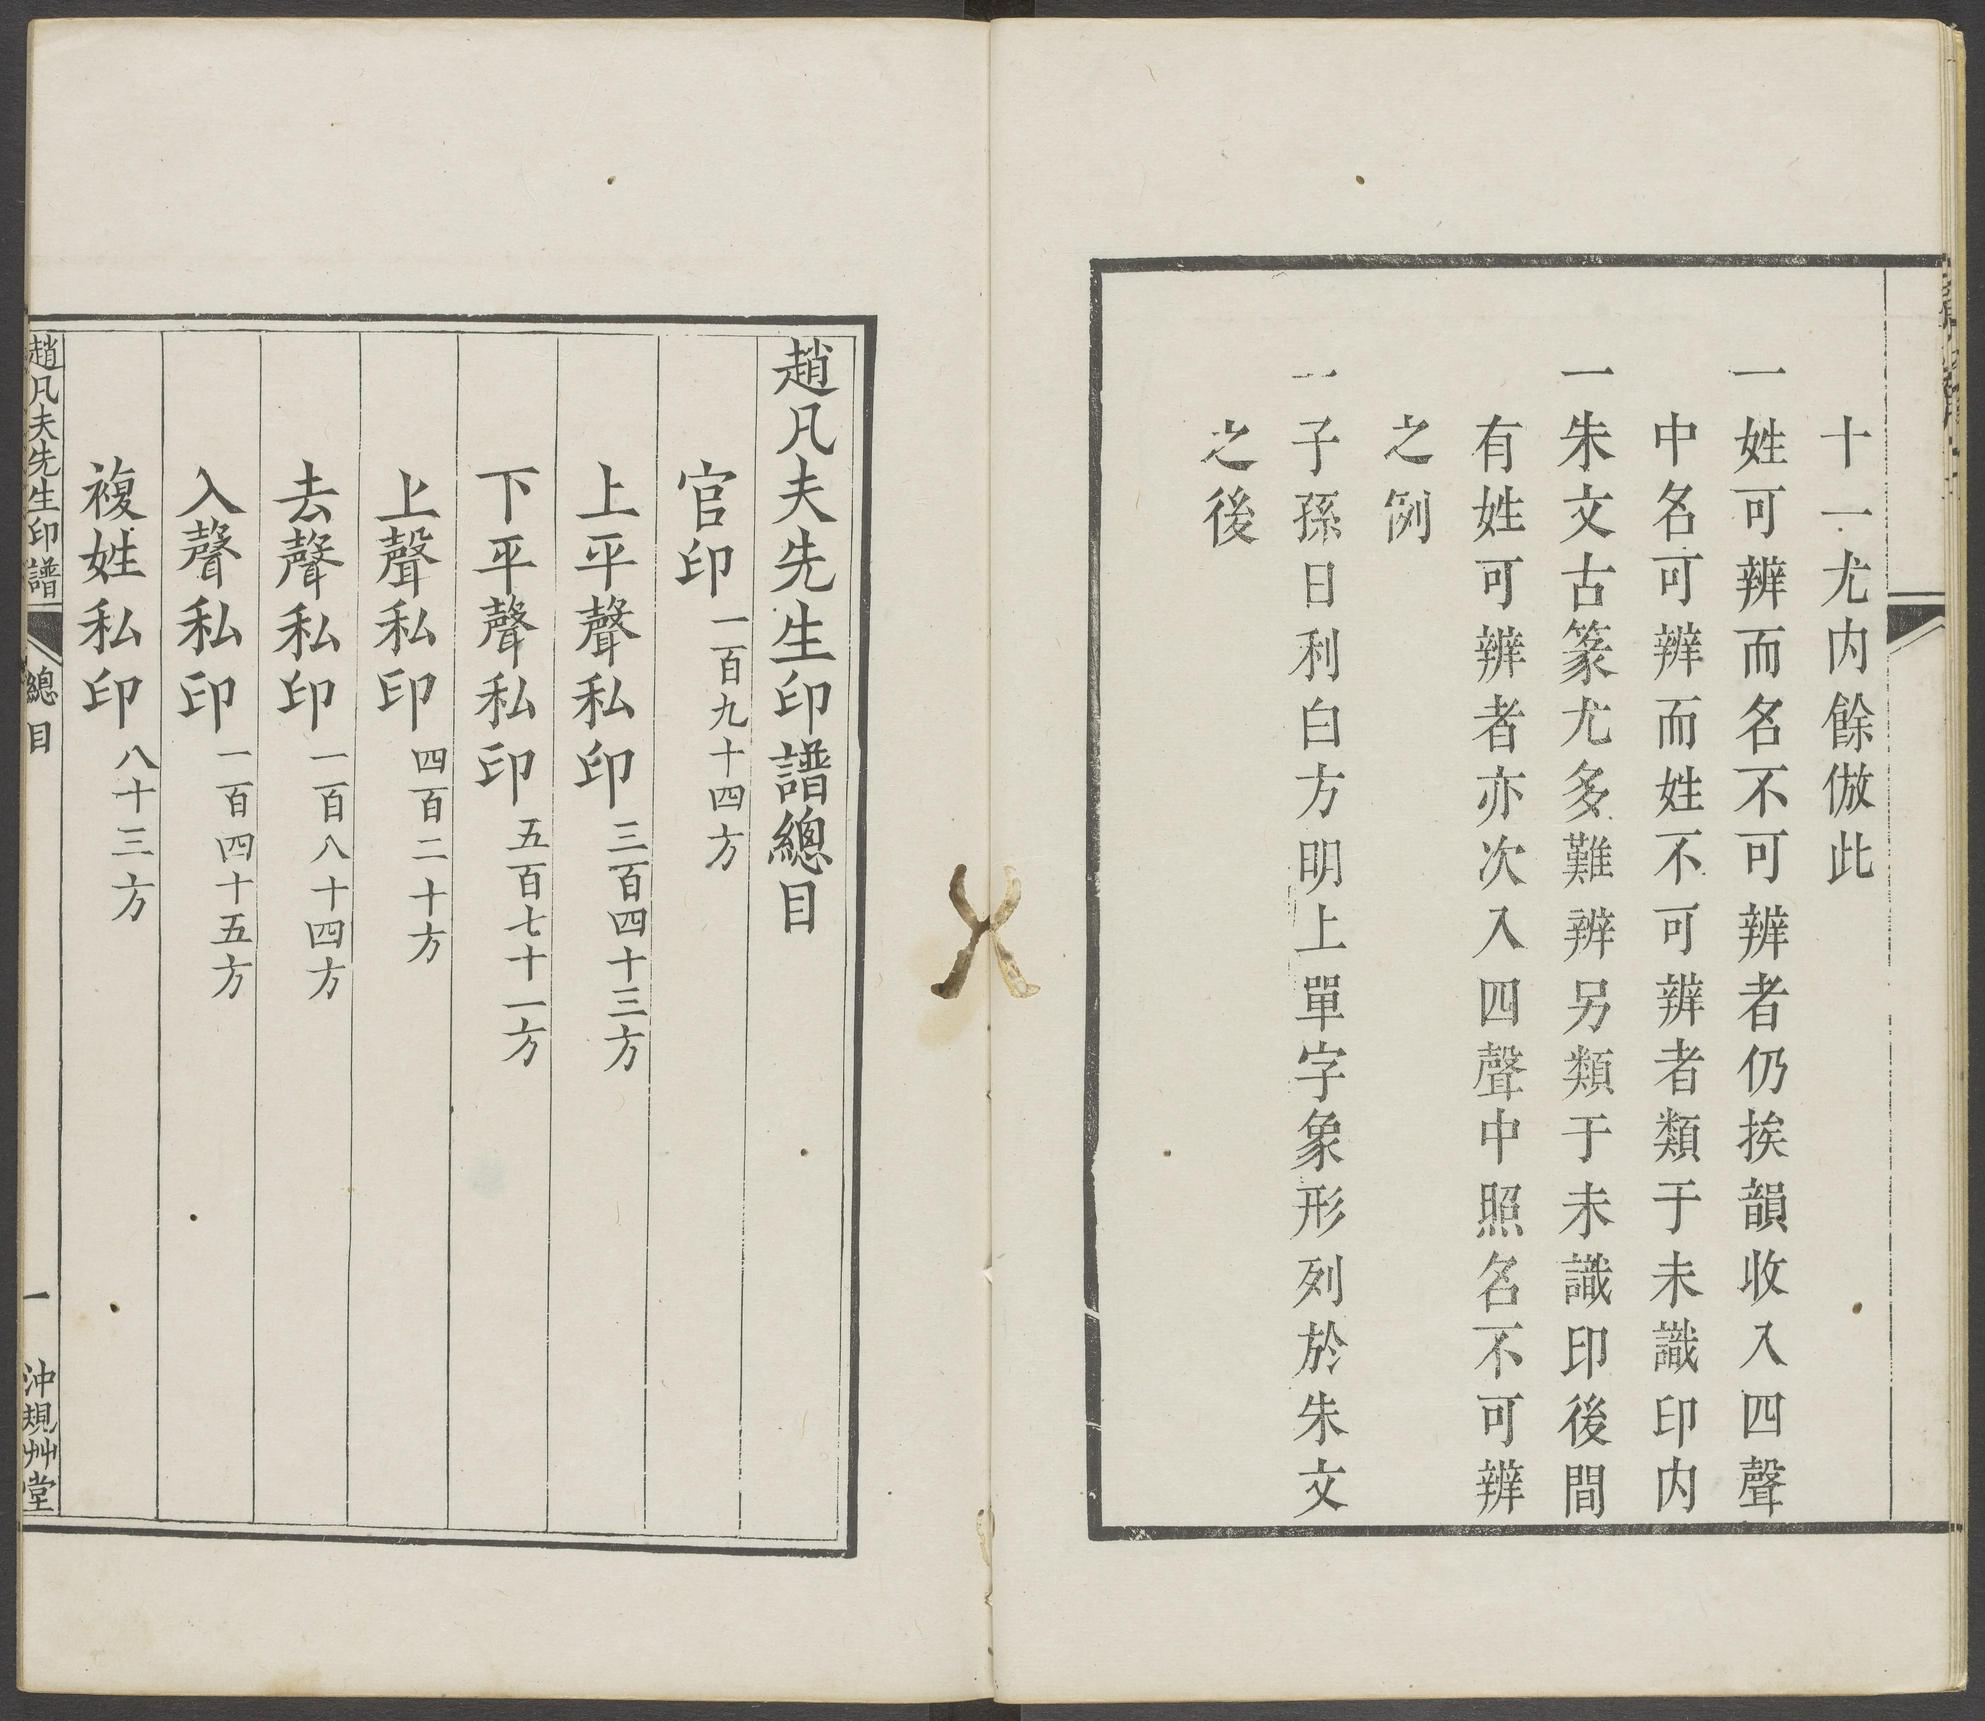 十一尤内餘倣此
一姓可辨而名不可辨者仍挨韻收入四聲
中名可辨而姓不可辨者類于未識印内
一朱文古篆尤多難辨另類于未識印後間
有姓可辨者亦次入四聲中照名不可辨
之例
一子孫日利白方明上單字象形列於朱文
之後
趙凡夫先生印譜總目
官印一百九十四方
上平聲私印三百四十三方
下平聲私印五百七十一方
上聲私印四百二十方
去聲私印一百八十四方
入聲私印一百四十五方
複姓私印八十三方
趙凡夫先生印譜 總目 一 沖規艸堂